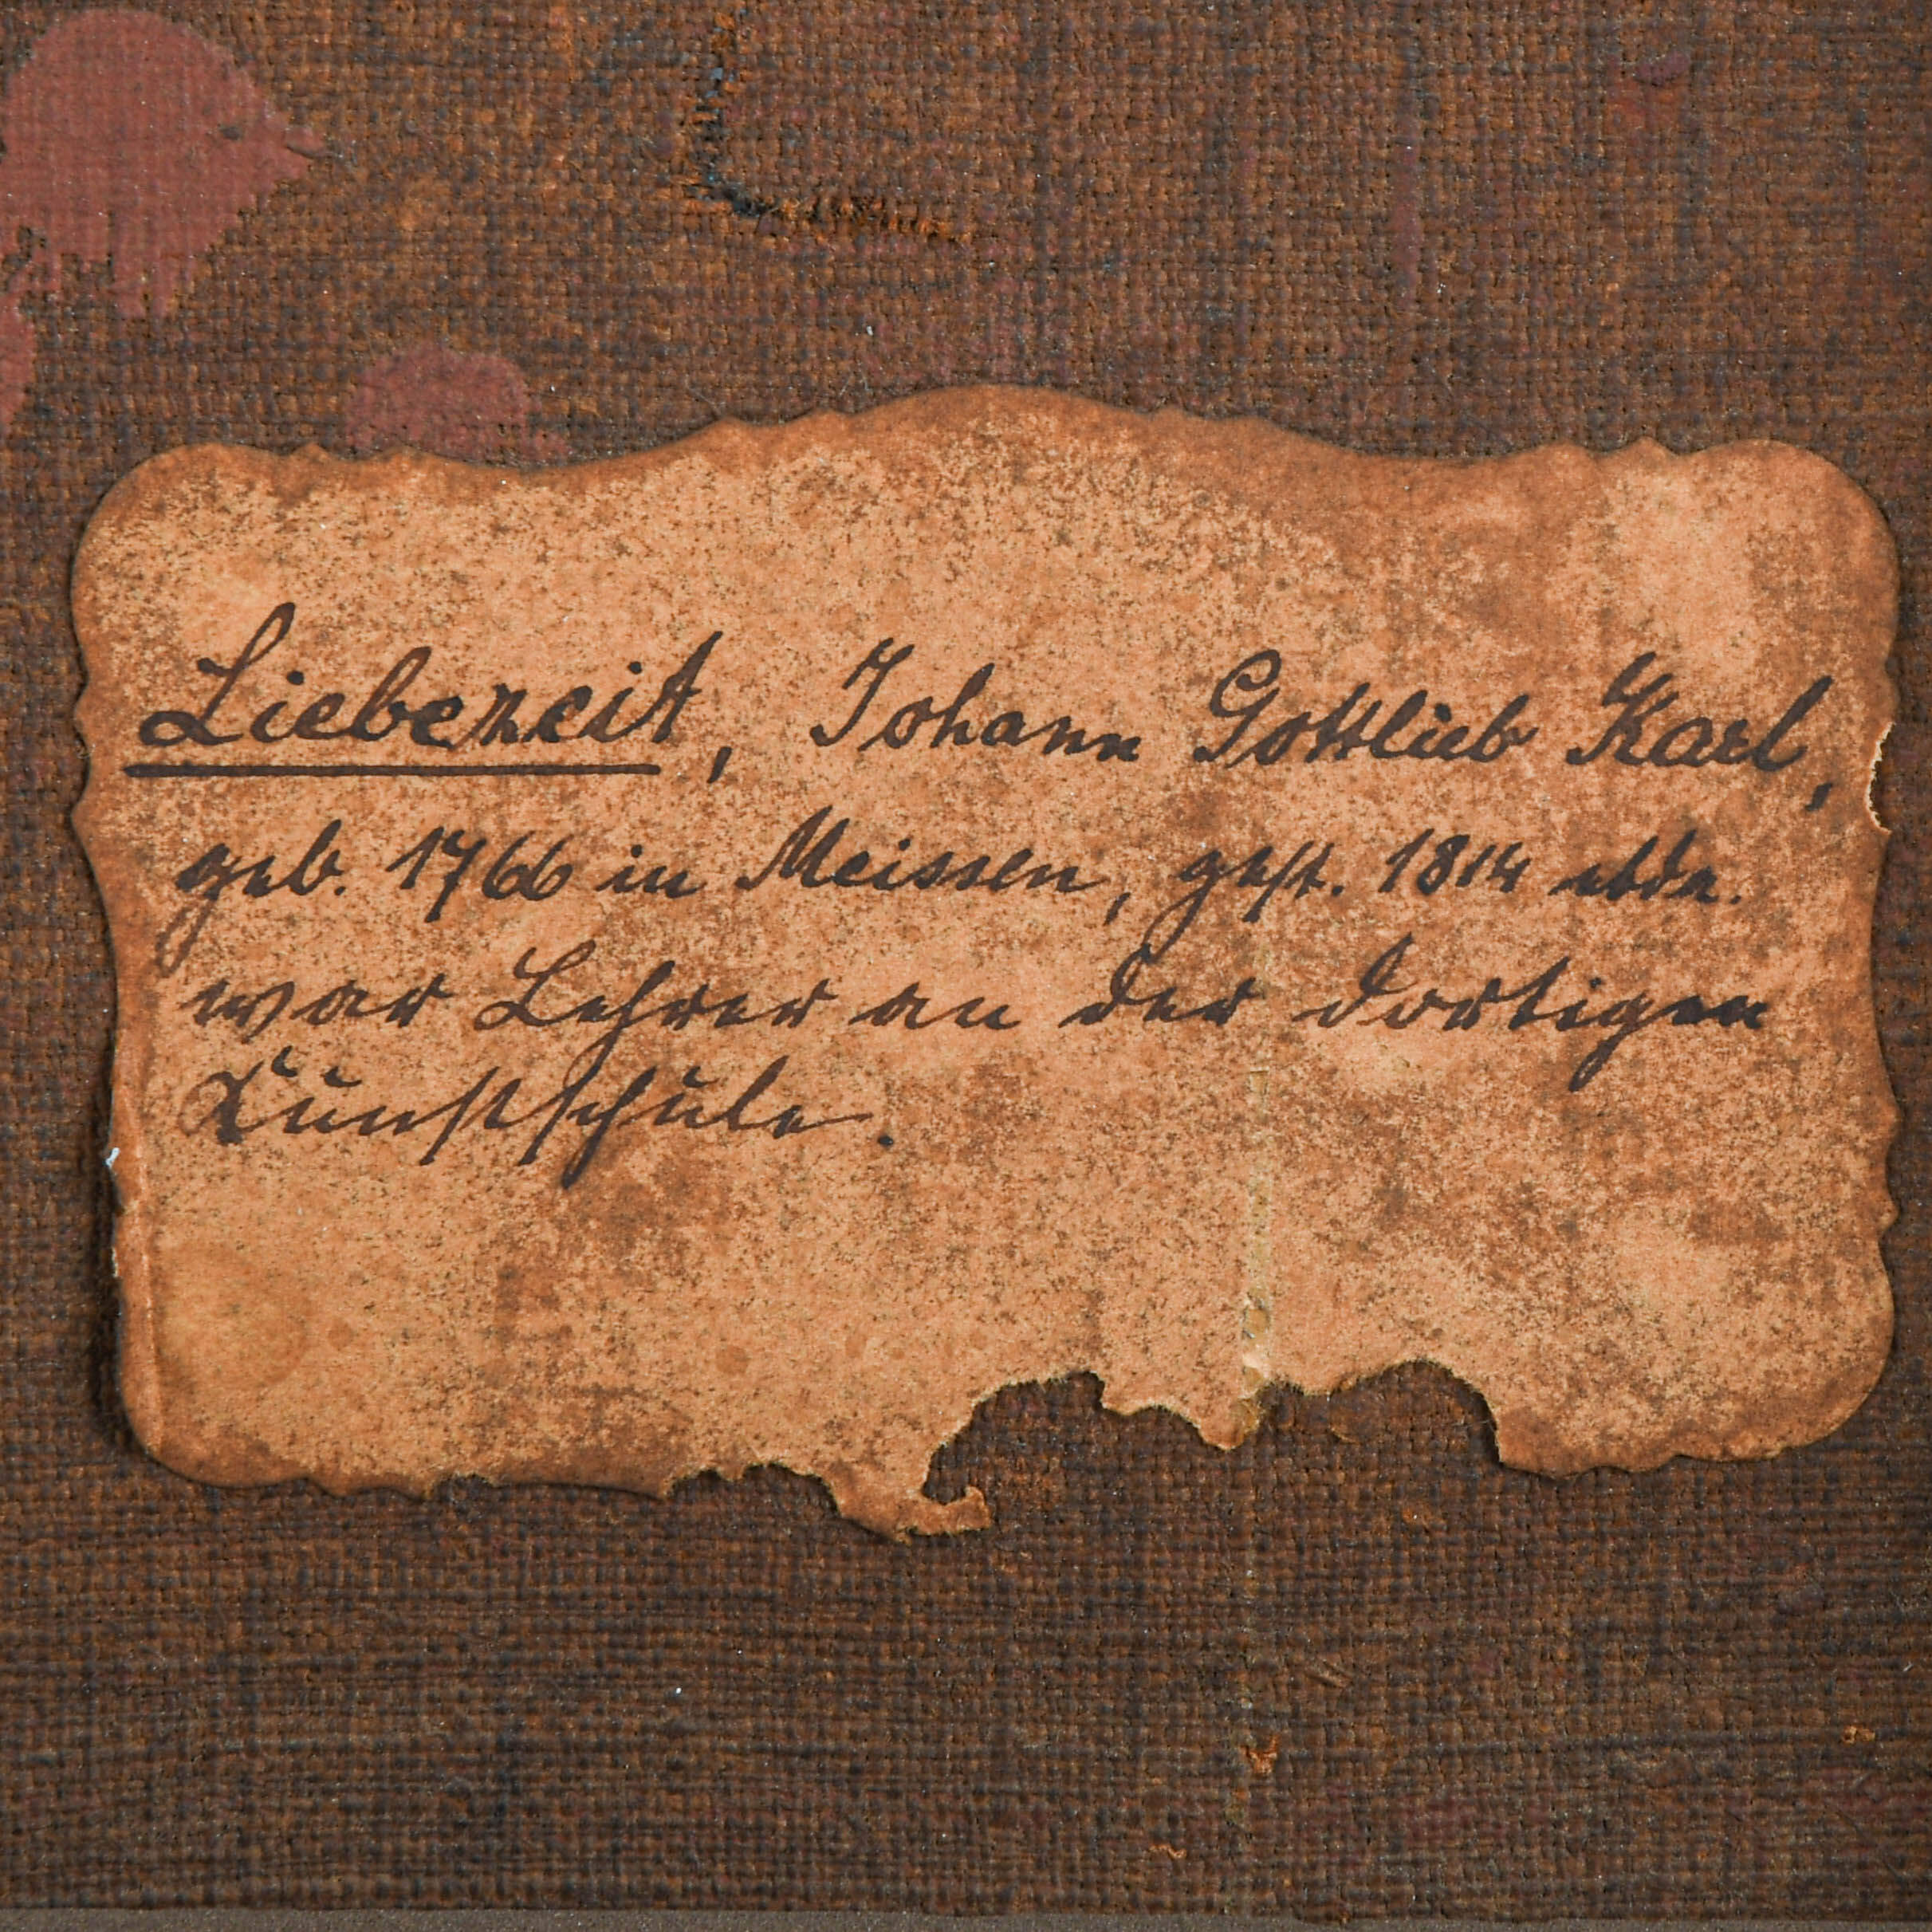 Liebezeit, Johann Gottlieb Karl,
geb. 1766 in Meissen, gest. 1814 ebda.
war Lehrer an der dortigen
Kunstschule.